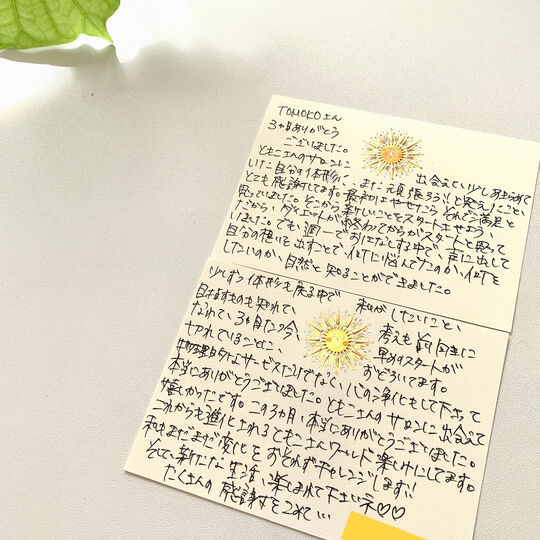 TOMOKOさん
3ヶ月ありがとう
ございました。
ともこさんのサロンに 出会えていなく少しあきらめて
いた自分の体形に、また頑張ろう!と思えたこと、
とても感謝してます。最初はやせたらそれで満足と
思っていました。そこから新しいことをスタートさせよう、
だから、ダイエットが終わってからがスタートと思って
いました。でも、週一でおはなしする中で、声に出して
自分の想いを出すことで、何に悩んでたのか、何を
したいのか、自然と知ることができました。
少しずつ体形も戻る中で 私がしたいこと、
目指すものも知れて 考えも前向きに
なれて、3ヶ月たった今、 早めスタートが
切れていることに、 おどろいてます。
物理的なサービスだけでなく、心の浄化もして下さって
本当にありがとうございました。ともこさんのサロンに出会えて
嬉しかったです。この3ヵ月、本当にありがとうございました。
これからも進化されるともこさんワールド楽しみにしてます。
私もまだまだ変化をおそれずチャレンジします!!
そして、新たな生活、楽しまれて下さいネ♡♡
たくさんの感謝をこめて…